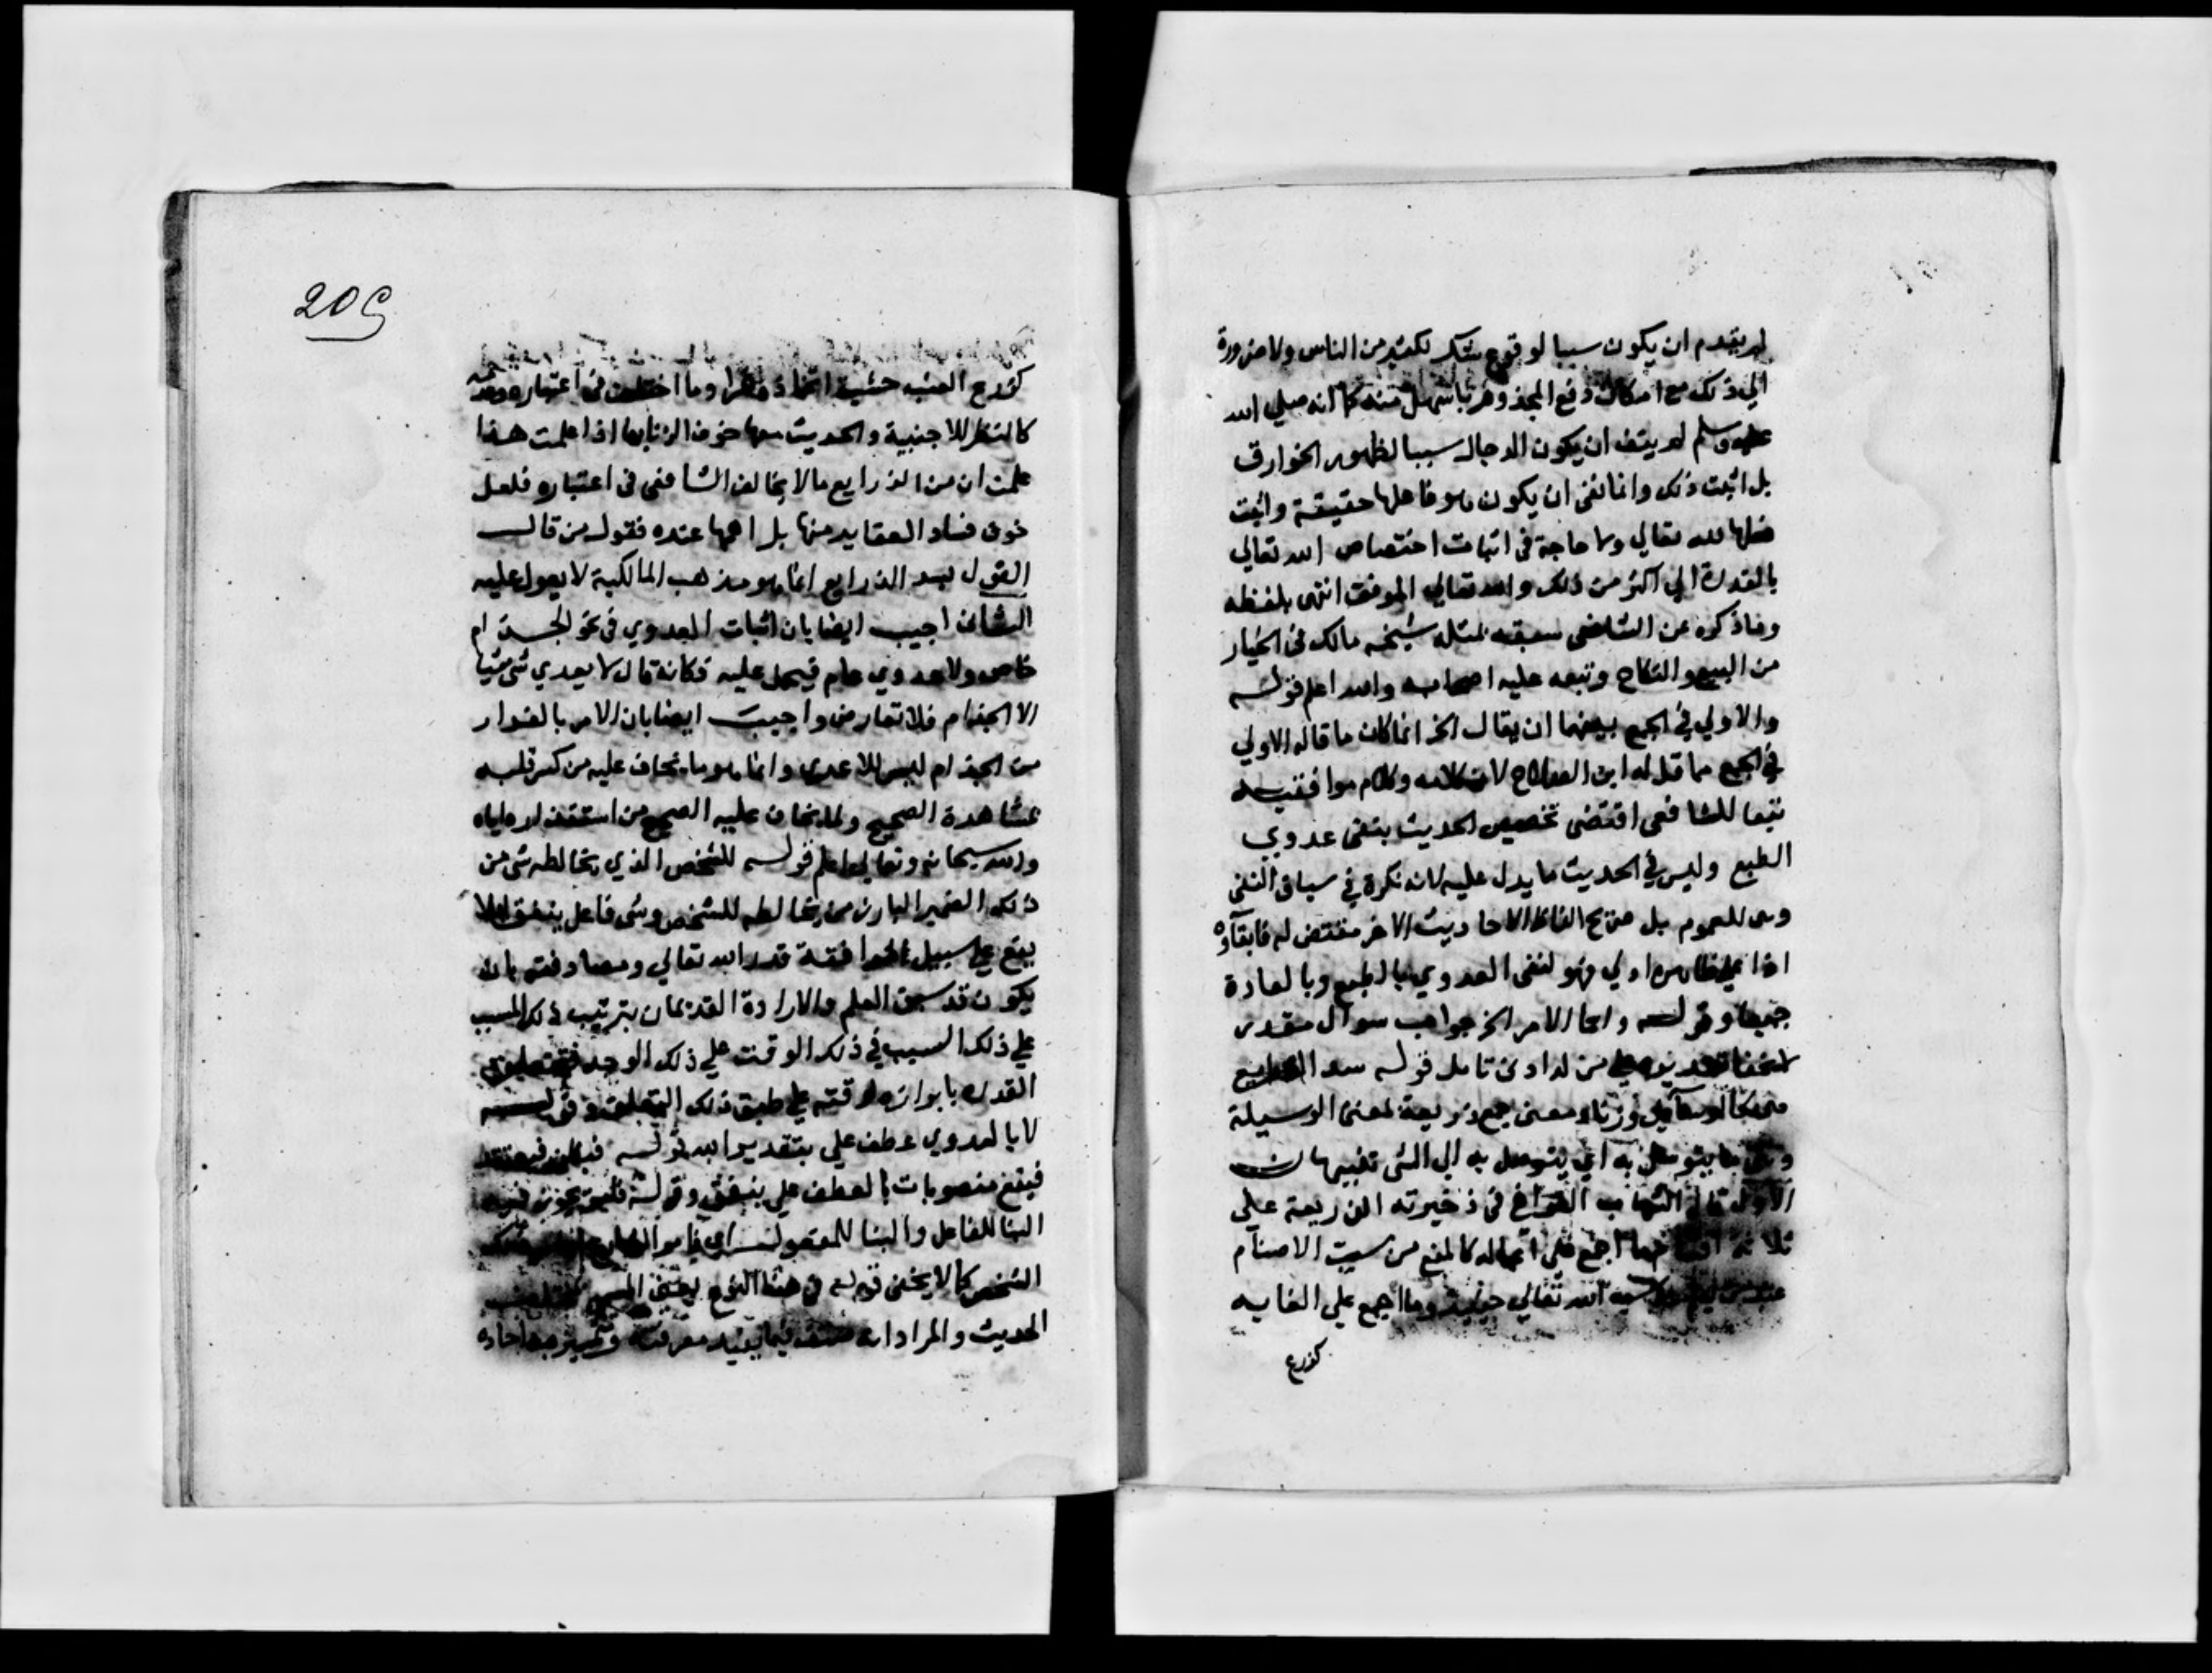 لم يقدم ان يكون سببا لوقوع شك لكثير من الناس ولا ضرورة
الي ذلك مع امكان دفع المجذوم باسهل منه كما انه صلي الله
عليه وسلم لم ينف ان يكون الدجال سببا لظهور الخوارق
بل اثبت ذلك وانما نفي ان يكون هو فاعلها حقيقة واثبت
فعلها لله تعالي ولا حاجة في اثبات اختصاص الله تعالي
بالقدرة الي اكثر من ذلك والله تعالي الموفق انتهي بلفظه
وما ذكره عن الشافعي سبقه لمثله شيخه مالك في الخيار
من البيع والنكاح وتبعه عليه اصحابه والله اعلم قوله
والاولي في الجمع بينهما ان يقال الخ انما كان ما قاله الاولي
في الجمع مما قاله ابن الصلاح لان كلامه وكلام موافقيه
تبعا للشافعي اقتضي تخصيص الحديث بنفي عدوي
الطبع وليس في الحديث ما يدل عليه لانه نكرة في سياق النفي
وهي للعموم بل صريح الفاظ الاحاديث الاخر مقتض له فابقاؤه
اذا علي ظاهره اولي فهو لنفي العدوي بالطبع وبالعادة
جميعا وقوله واما الامر الخ جواب سوال مقدر
من لدادني تامل قوله سد
وزنا ومعني جمع ذريعة بمعني الوسيلة
وهي ما يتوصل به اي يتوصل به الي الشي تنبيهان
الاول قال الشهاب القرافي في ذخيرته الذريعة علي
ثلاثة اقسام ما اجمع علي اعماله كالمنع من سب الاصنام
الله تعالي حينئذ وما اجمع علي الغايه
كزرع
209
كزرع العنب خشية اتخاذه خمرا وما اختلف في اعتباره
كالنظر للاجنبية والحديث معها خوف الزنا بها اذا علمت هذا
علمت ان من الذرايع ما لا يخالف الشافعي في اعتباره فلعل
خوف فساد العقايد منها بل اهمها عنده فقول من قال
القول بسد الذرايع انما هو مذهب المالكية لا يعول عليه
الثاني اجيب ايضا بان اثبات العدوي في نحو الجذام
خاص ولا عدوي عام فيحمل عليه فكانه قال لا يعدي شي شيا
الا الجذام فلا تعارض واجيب ايضا بان الامر بالفرار
من الجذام ليس للاعدي وانما هو ما يخاف عليه من كسر قلبه
بمشاهدة الصحيح ولما يخاف عليه الصحيح من استقذاره اياه
والله سبحانه وتعالي اعلم قوله للشخص الذي يخالطه شي من
ذلك الضمير البارز من يخالطه للشخص وشي فاعل يتفق اي لا
يقع علي سبيل الموافقة قدر الله تعالي ومصادفته بان
يكون قد سبق العلم والارادة القديمان بترتيب ذلك المسبب
علي ذلك السبب في ذلك الوقت علي ذلك الوجه
القدرة بابرازه وقته علي طبق ذلك التعلق وقوله
لا بالعدوي عطف علي بتقدير الله قوله
فيقع منصوبات بالعطف علي يتفق وقوله يجوز فيه
البنا للفاعل والبنا للمفعول
الشخص كما لا يخفي قوله في هذا النوع
الحديث والمراد انه صنف فيما يفيد معرفته